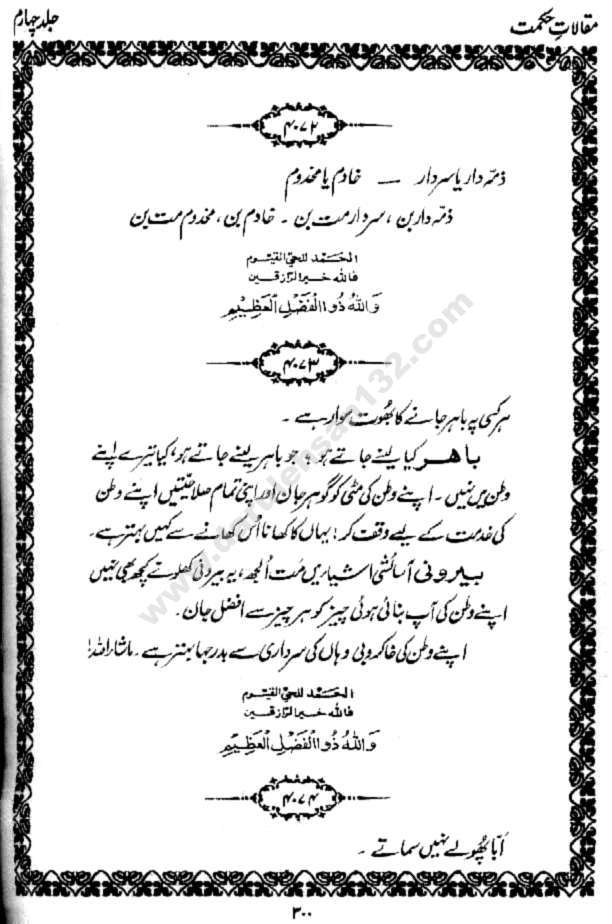 مقالاتِ حکمت
جلد چہارم
۴۰۷۲
ذمّہ دار یا سردار — خادم یا مخدوم
ذمّہ دار بن ، سردار مت بن ۔ خادم بن ، مخدوم مت بن
الحَمد للحیّ القیّوم
فاللہ خیر الرّازقین
وَاللهُ ذُوالْفَضْلِ الْعَظِيْمِ
۴۰۷۳
ہر کسی پہ باہر جانے کا بھُوت سوار ہے ۔
باھر کیا لینے جاتے ہو ؟ جو باہر لینے جاتے ہو ، کیا تیرے اپنے
وطن میں نہیں ۔ اپنے وطن کی مٹی کو گوہر جان اور اپنی تمام صلاحیّتیں اپنے وطن
کی خدمت کے لیے وقف کر ! یہاں کا کھانا اُس کھانے سے کہیں بہتر ہے ۔
بیرونی آسائشی اشیا میں مت اُلجھ ، یہ بیرونی کھلونے کچھ بھی نہیں
اپنے وطن کی آپ بنائی ہوئی چیز کو ہر چیز سے افضل جان ۔
اپنے وطن کی خاکروبی وہاں کی سرداری سے بدرجہا بہتر ہے ۔ ماشاءاللہ !
الحَمد للحیّ القیّوم
فاللہ خیر الرّازقین
وَاللهُ ذُوالْفَضْلِ الْعَظِيْمِ
۴۰۷۴
اُبّا پھُولے نہیں سماتے ۔
۳۰۰
www.darulehsan132.com